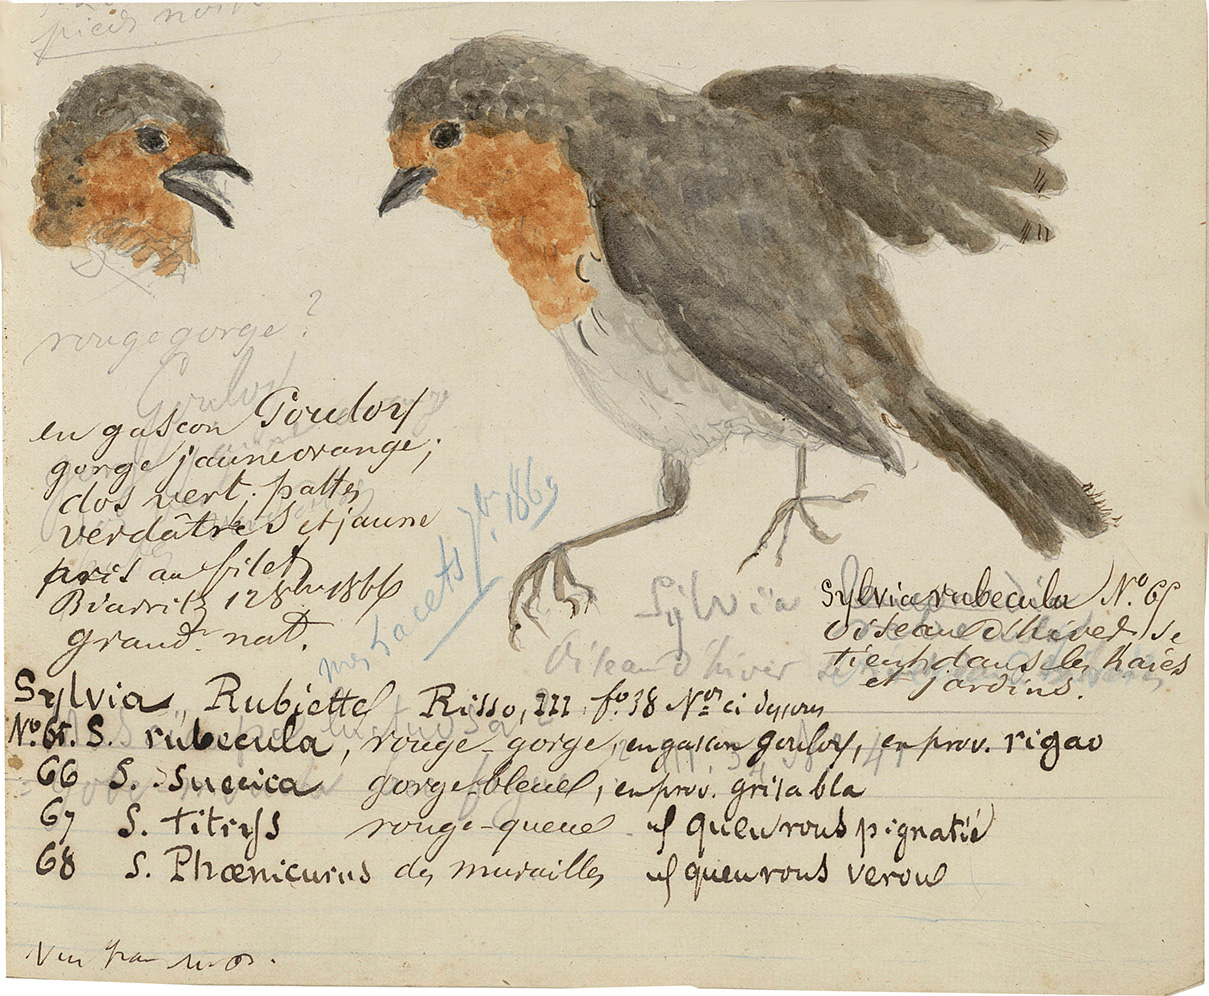 pieds
rougegorge?
Goulou
en gascon Gouloy
gorge jauneorange;
dos vert; pattes
verdâtres et jaune
pris au filet
Biarritz 12 8bre 1866
grandr nat.
mes lacets 7br 1869
Sylvia
Oiseau d'hiver
Sylvia rubecula No. 65
Oiseau d'hiver se
tient dans les haies
et jardins.
Sylvia, Rubiette Risso, III fo 38 Nos ci dessous
No. 65. S. rubecula, rouge-gorge, en gascon gouloy, en prov. rigao
66 S. Suecica gorge-bleue, en prov. grisa bla
67 S. titiys rouge-queue id queurous pignatié
68 S. Phœnicurus des murailles id queurous verou